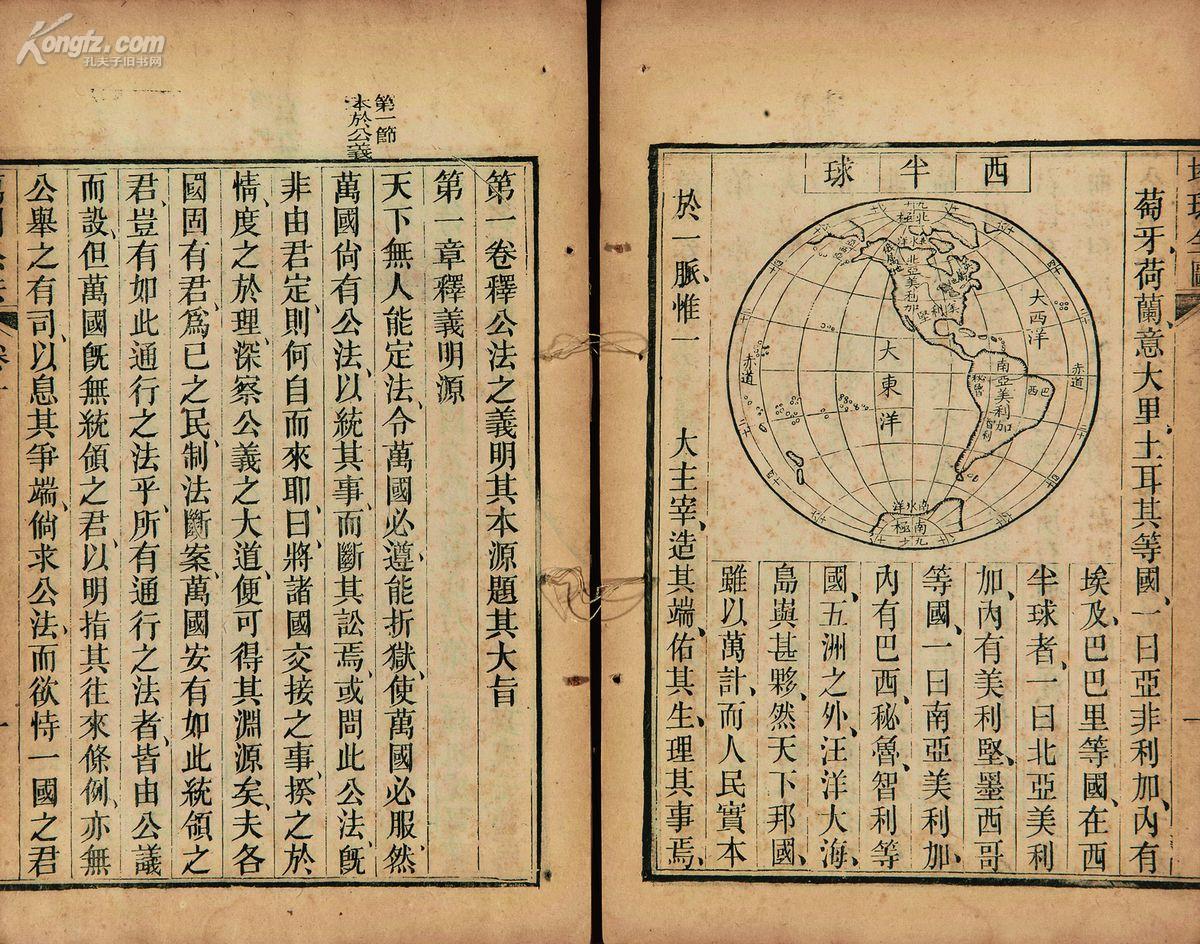 Kongfz.com
孔夫子旧书网
葡牙、荷蘭、意大里、土耳其等國、一曰亞非利加、內有
埃及、巴巴里等國、在西
半球者、一曰北亞美利
加、內有美利堅、墨西哥
等國、一曰南亞美利加、
內有巴西、秘魯、智利等
國、五洲之外、汪洋大海、
島與甚夥、然天下邦國、
雖以萬計、而人民實本
於一脈、惟一 大主宰、造其端、佑其生、理其事焉、
西半球
北極
北氷洋
北亞美利加
美利堅
大西洋
大東洋
赤道
赤道
南亞美利加
巴西
秘魯
智利
南氷洋
南極
第一卷釋公法之義明其本源題其大旨
第一章釋義明源
第一節
本於公義
天下無人能定法、令萬國必遵、能折獄、使萬國必服、然
萬國尙有公法、以統其事、而斷其訟焉、或問此公法、旣
非由君定、則何自而來耶、曰將諸國交接之事、揆之於
情、度之於理、深察公義之大道、便可得其淵源矣、夫各
國固有君、爲已之民、制法斷案、萬國安有如此統領之
君、豈有如此通行之法乎、所有通行之法者、皆由公議
而設、但萬國旣無統領之君、以明指其往來條例、亦無
公舉之有司、以息其爭端、倘求公法、而欲恃一國之君